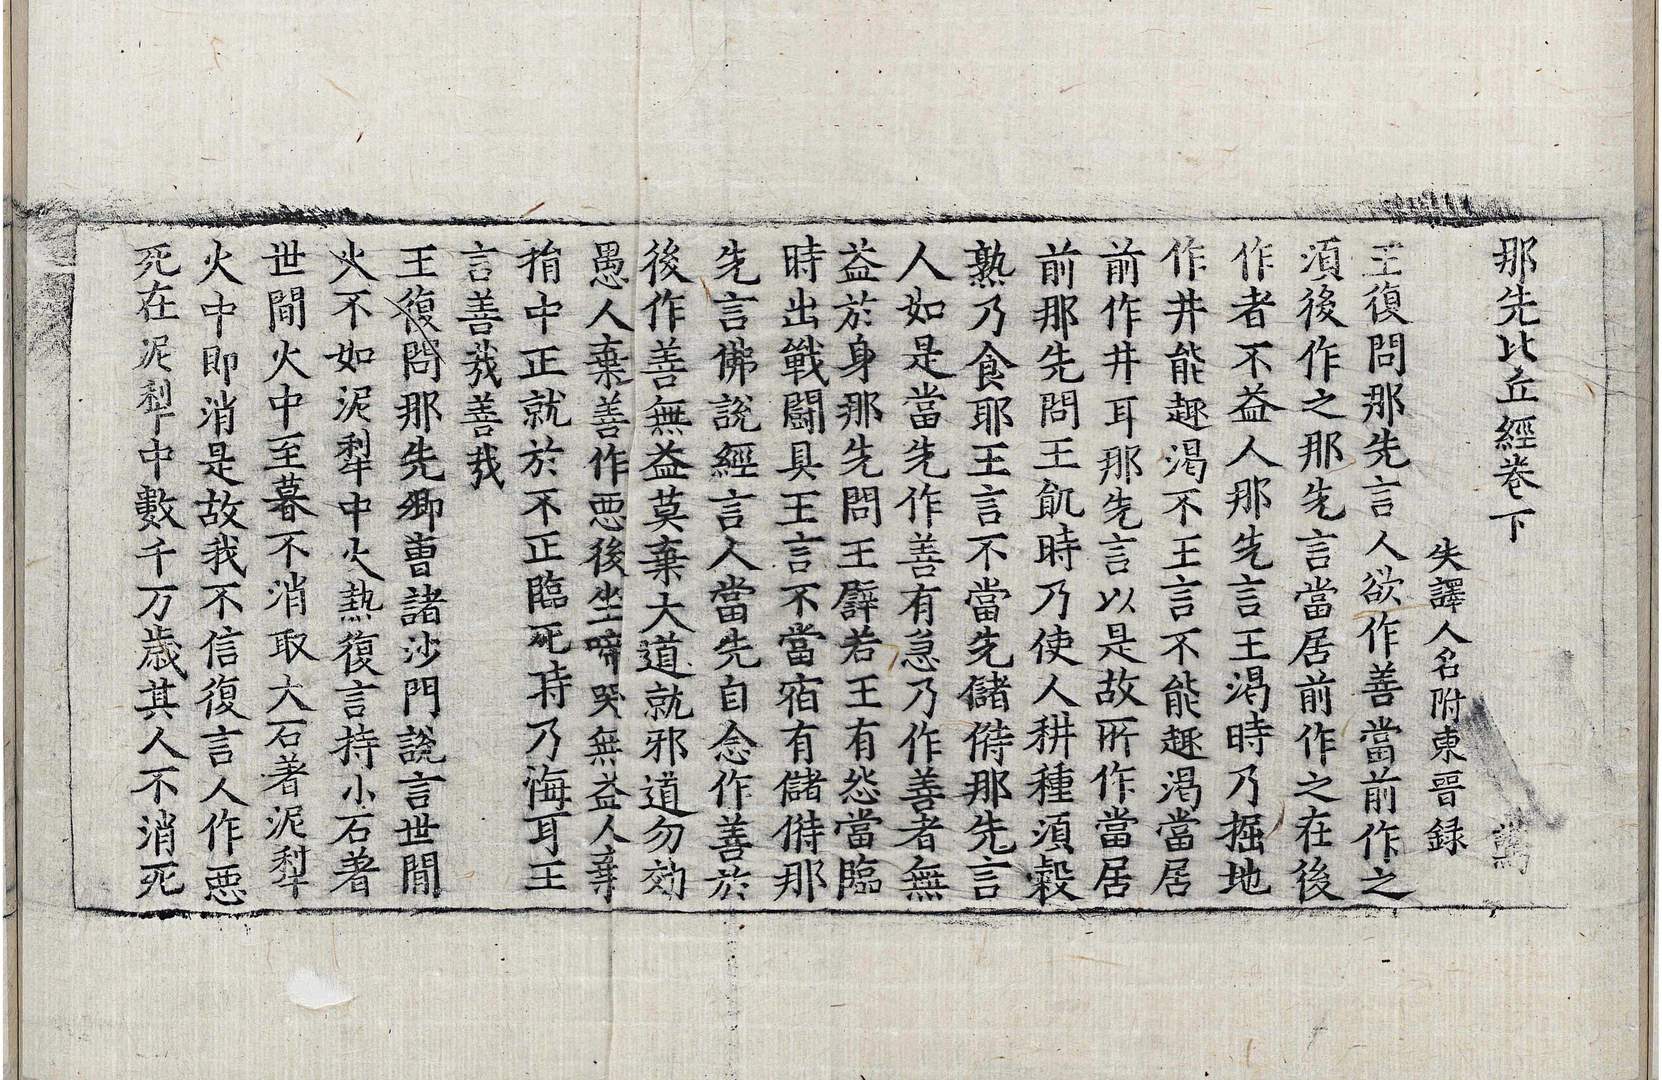 那先比丘經卷下
失譯人名附東晉録 篤
王復問那先言人欲作善當前作之
湏後作之那先言當居前作之在後
作者不益人那先言王渴時乃掘地
作井能趣渴不王言不能趣渴當居
前作井耳那先言以是故所作當居
前那先問王飢時乃使人耕種湏穀
熟乃食耶王言不當先儲偫那先言
人如是當先作善有急乃作善者無
益於身那先問王譬若王有怨當臨
時出戰鬪具王言不當宿有儲偫那
先言佛說經言人當先自念作善於
後作善無益莫棄大道就邪道勿効
愚人棄善作惡後坐啼哭無益人棄
捐中正就於不正臨死時乃悔耳王
言善哉善哉
王復問那先卿曹諸沙門說言世間
火不如泥犁中火熱復言持小石著
世間火中至暮不消取大石著泥犁
火中即消是故我不信復言人作惡
死在泥犁中數千万歲其人不消死